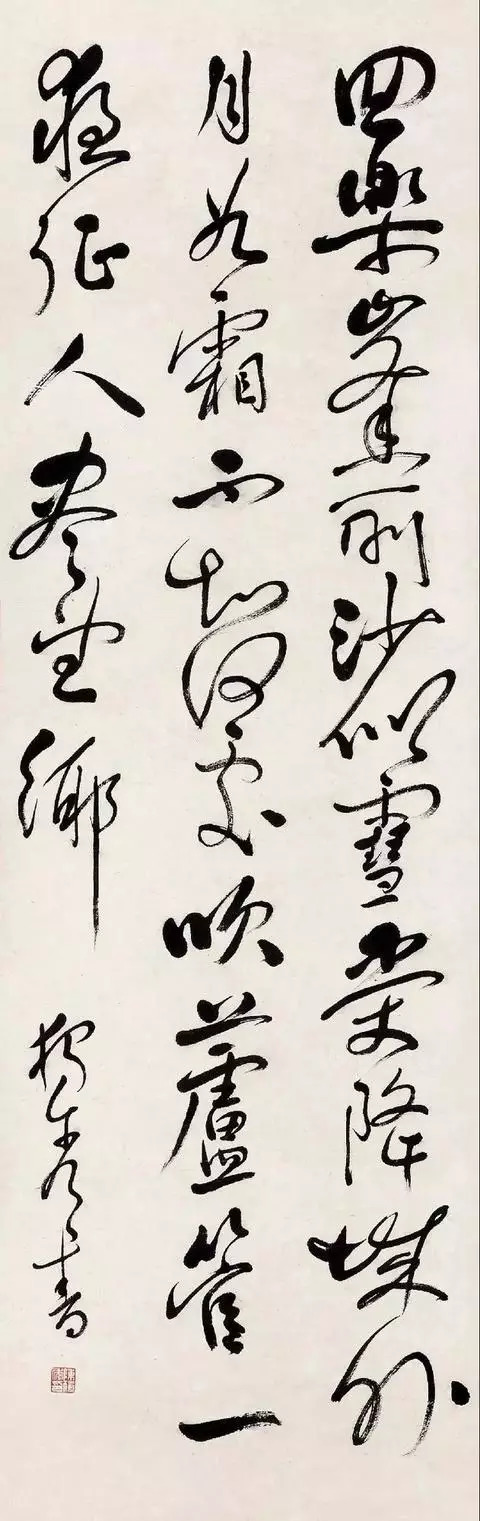 回樂峯前沙似雪受降城外
月如霜不知何處吹蘆管一
夜征人盡望鄉
書